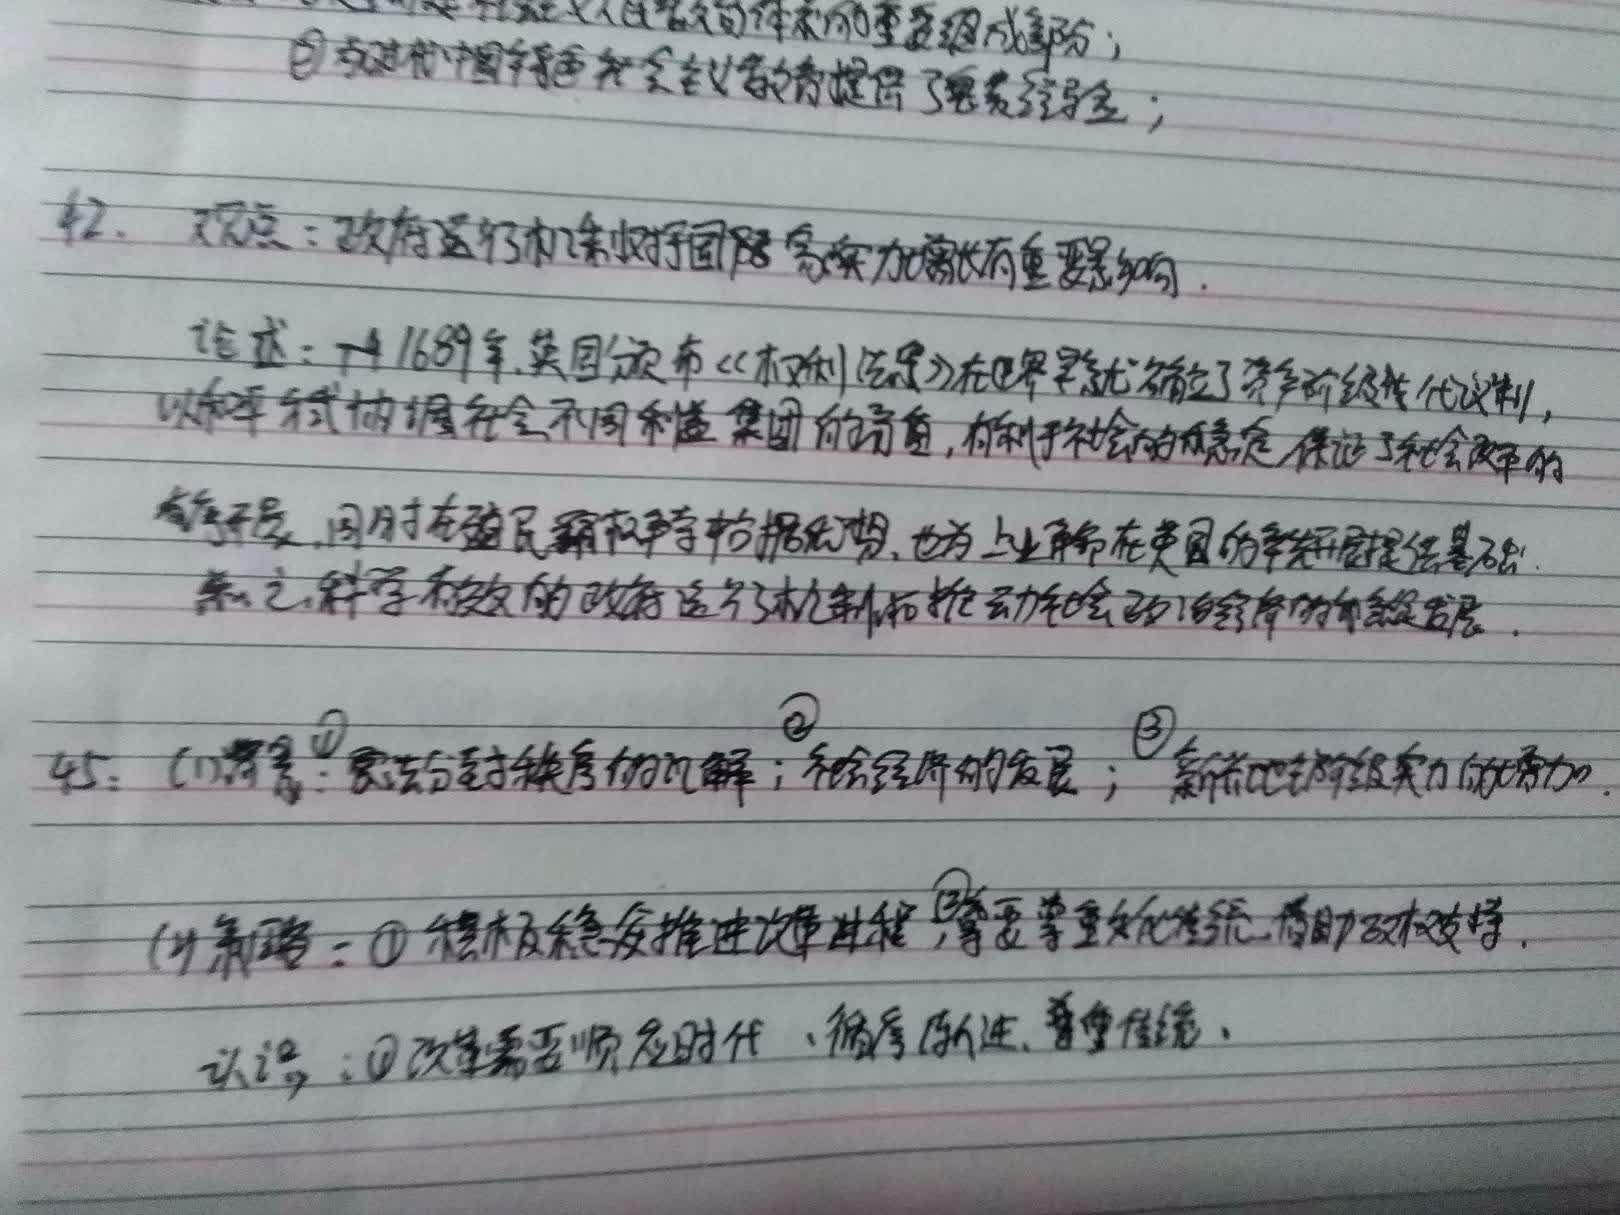 人民民主的体系的重要组成部分；
②为建设中国特色社会主义教育提供了宝贵经验；
42. 观点：政府运行机制对于国家实力增长有重要影响.
论述：1689年,英国颁布《权利法案》在世界率先确立了资产阶级代议制,
以和平方式协调社会不同利益集团的矛盾,有利于社会的稳定,保证了社会改革的
有序开展,同时在殖民霸权争夺中占据优势,也为工业革命在英国的率先开展提供基础.
总之,科学有效的政府运行机制推动社会政治经济的和谐发展.
45: (1)背景：①宗法分封秩序的瓦解；②社会经济的发展；③新兴地主阶级实力的增加.
(2)策略：①积极稳妥推进改革进程,②需要尊重文化传统,借助政权支撑.
认识：①改革需要顺应时代、循序渐进、尊重传统.